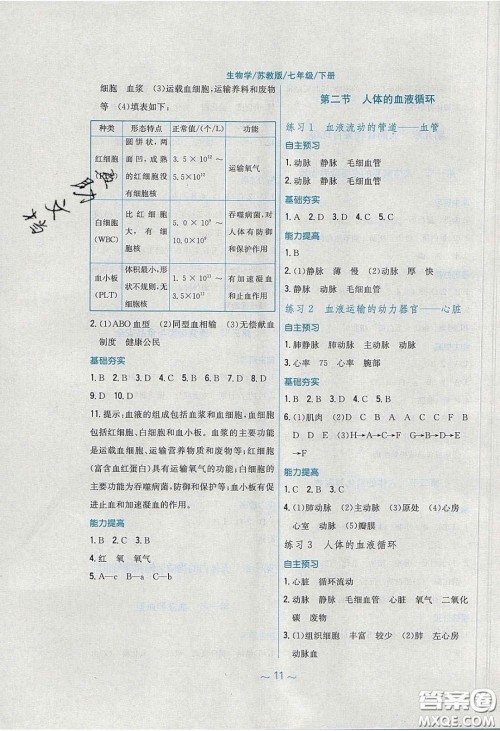 生物学/苏教版/七年级/下册
细胞 血浆 (3)运载血细胞;运输养料和废物
等 (4)填表如下:
种类 形态特点 正常值/(个/L) 功能
红细胞
圆饼状,两
面凹,成熟
的红细胞没
有细胞核
运输氧气
白细胞
(WBC)
比红细胞
大,有细
胞核
吞噬病菌,对
人体有防御
和保护作用
血小板
(PLT)
体积最小,形
状不规则,无
细胞核
有加速凝血
和止血作用
2.(1)ABO血型 (2)同型血相输 (3)无偿献血
制度 健康公民
基础夯实
1. B 2. B 3. D 4. C 5. B 6. C 7. B 8. D
9. D 10. D
11. 提示:血液的组成包括血浆和血细胞,血细胞
包括红细胞、白细胞和血小板。血浆的主要功能
是运载血细胞、运输营养物质和废物等。红细胞
(富含血红蛋白)具有运输氧气的功能。白细胞的
主要功能为吞噬病菌、防御和保护等;血小板有促
进止血和加速凝血的作用。
能力提高
1. B 2. B 3. C
4. 红 氧 氧气
5. A—c B—a C—b
第二节 人体的血液循环
练习1 血液流动的管道——血管
自主预习
1. 动脉 静脉 毛细血管
基础夯实
1. A 2. D 3. D 4. C 5. A
能力提高
1. B
2. (1)静脉 薄 慢 (2)动脉 厚 快
3. 动脉 静脉 毛细血管
练习2 血液运输的动力器官——心脏
自主预习
1. 肺静脉 肺动脉 主动脉 动脉 心室
3. 心率 75 心率 腕部
基础夯实
1. B 2. B 3. D 4. B 5. C
6. (1)肌肉 (2)D A C A C C F
B D (3)H→A→F G→C→D
E→B
能力提高
1. B 2. C 3. D
4. (1)肺动脉 (2)主动脉 (3)原处 (4)心房
心室 动脉 (5)瓣膜
练习3 人体的血液循环
自主预习
1. 心脏 循环流动
2. 动脉 静脉 毛细血管 心脏 氧气 二氧化
碳 废物
3. (1)组织细胞 丰富 较少 (2)肺 左心房
动脉血
~ 11 ~
答案圈
MXQE.COM